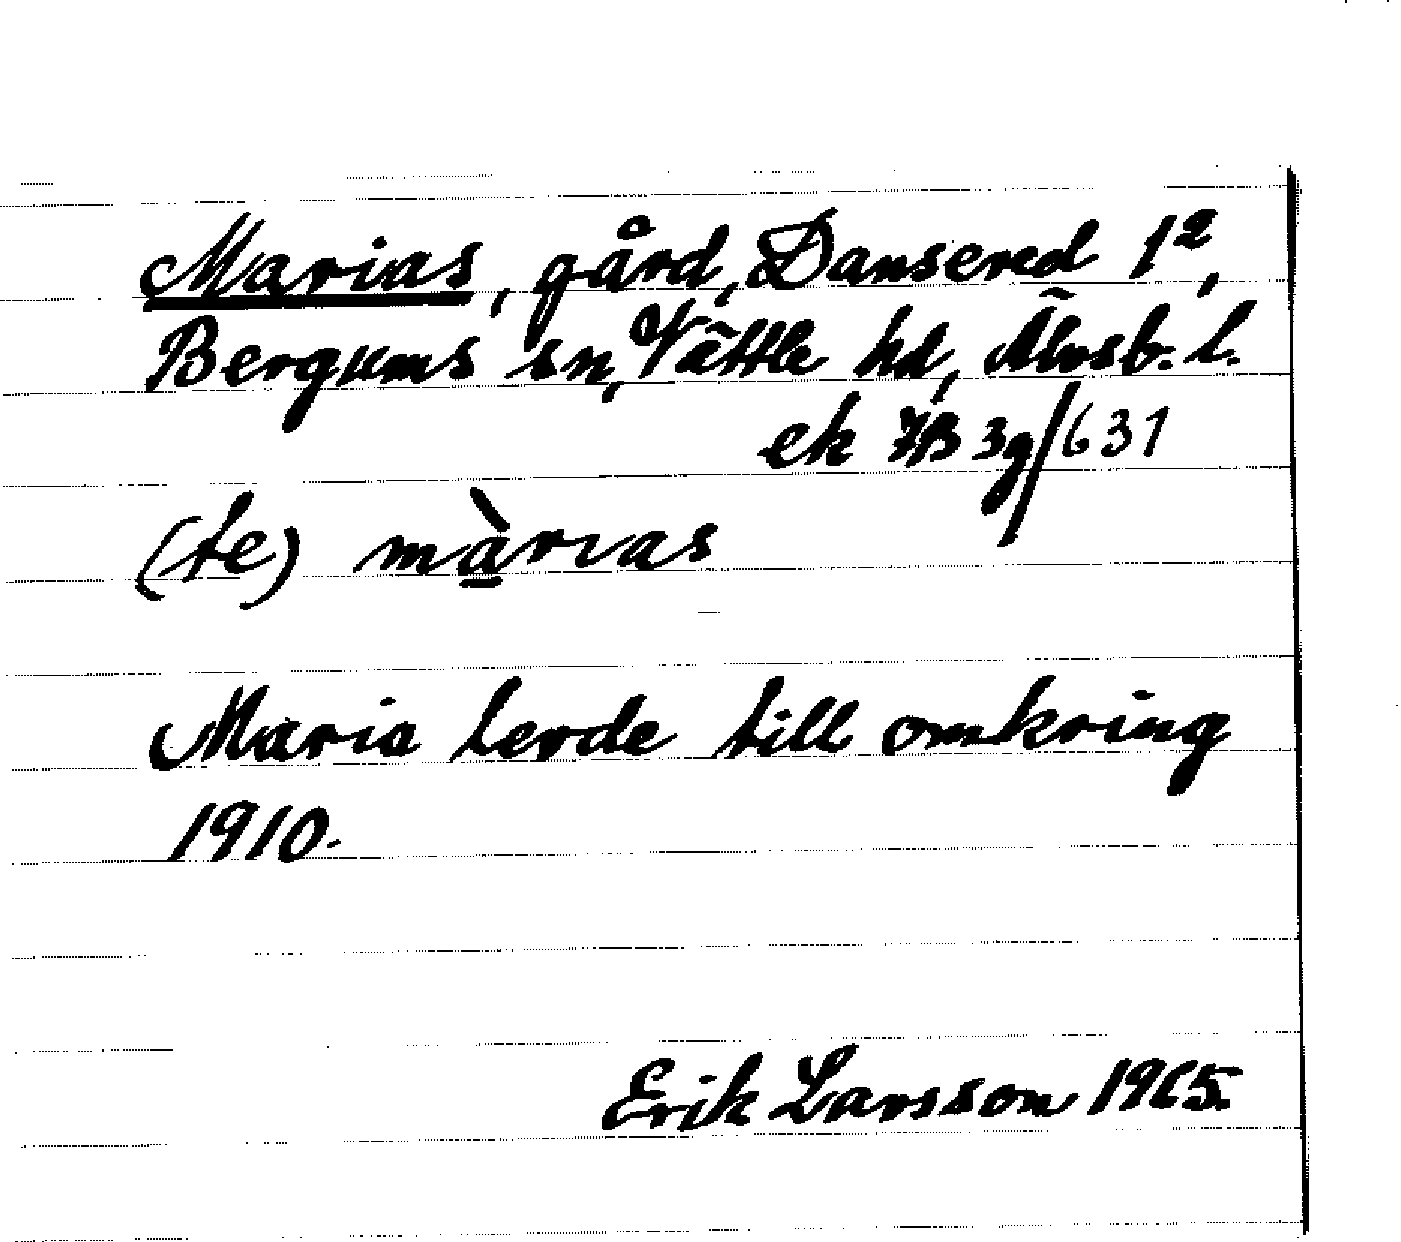 Marias, gård, Dansered 1²,
Bergums sn, Vättle hd, Älvsb. l.
ek 7B 3g/631
(te) màrıas
Maria levde till omkring
1910.
Erik Larsson 1965.